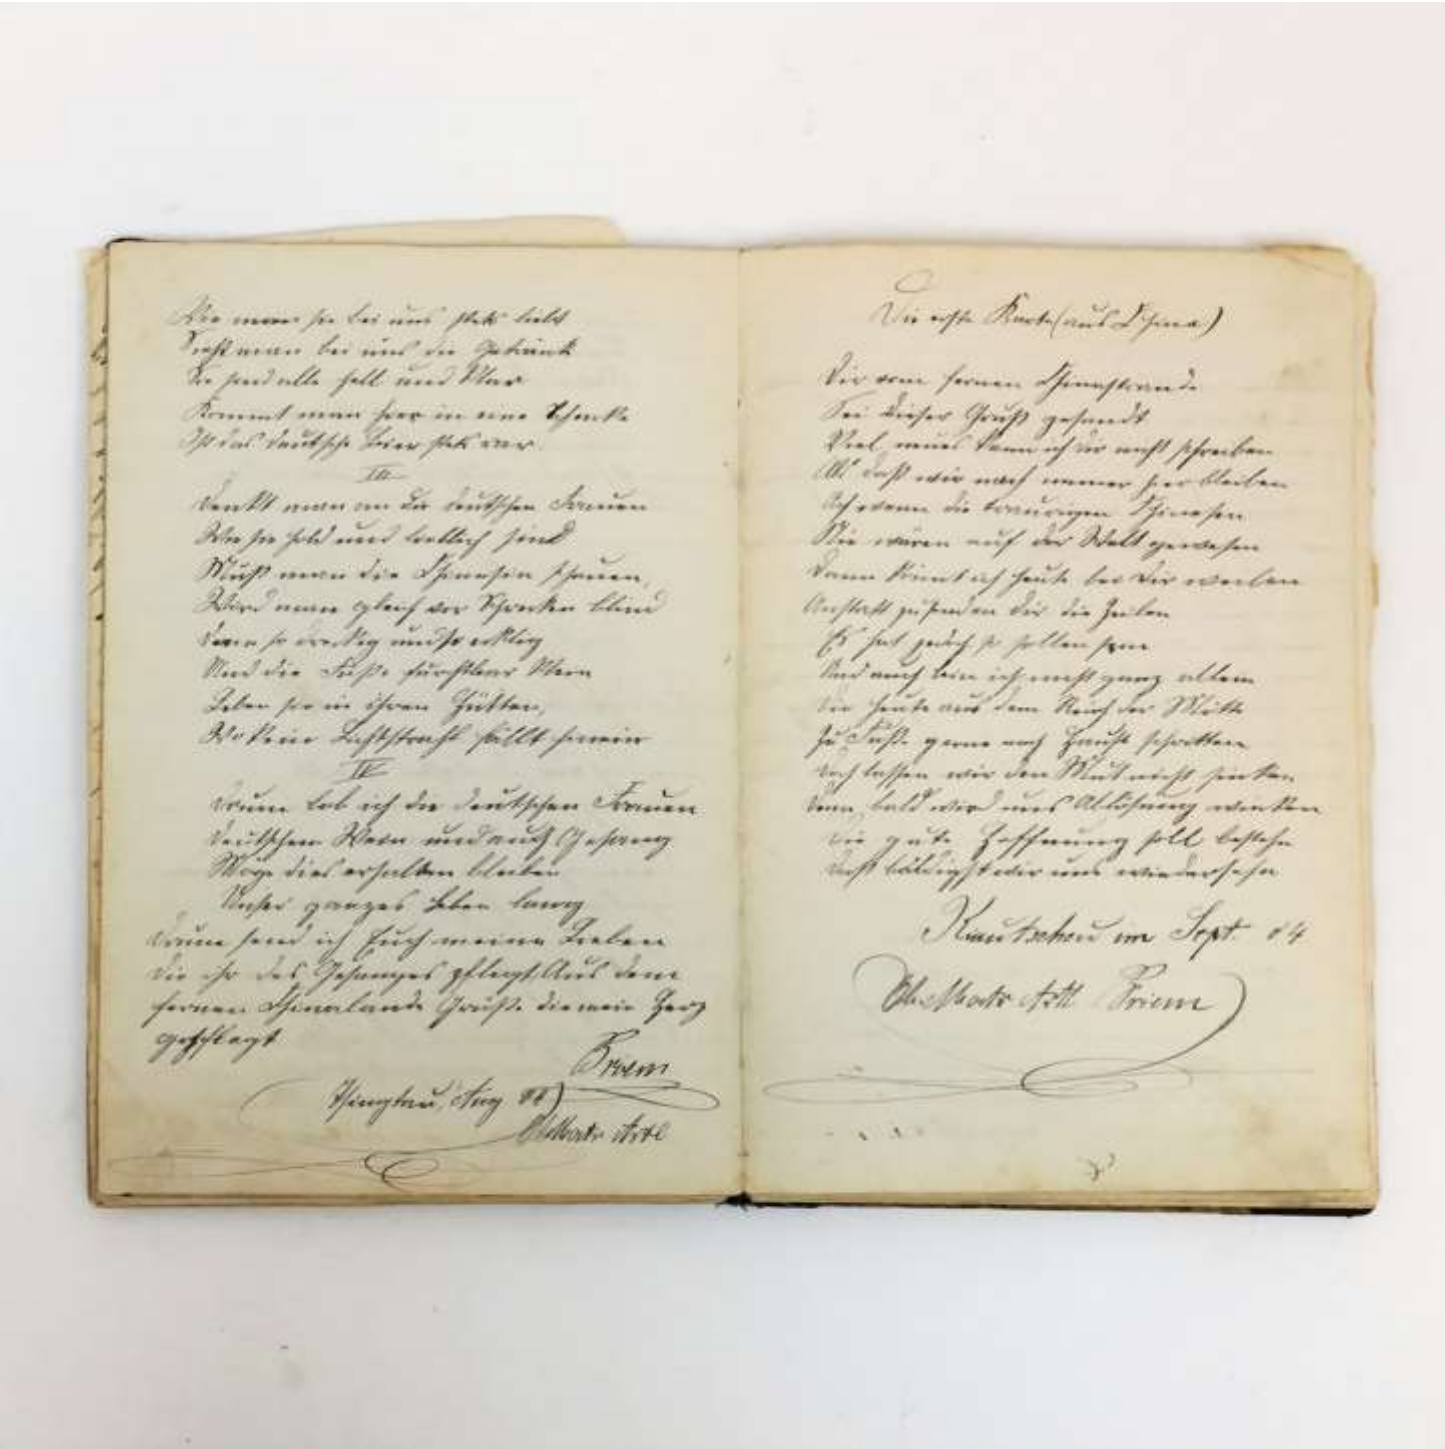 Wie man sie bei uns stets liebt
Sieht man bei uns die Getränk
Sie sind alle hell und klar
Kommt man hier in eine Schenke
Ist das deutsche Bier stets rar.
III
Denkt man an die deutschen Frauen
Wie sie hold und lieblich sind
Muß man die Chinesin schauen,
Wird man gleich vor Schrecken blind
Denn so dreckig und so eklig
Und die Füße furchtbar klein
Leben sie in ihren Hütten,
Wo kein Lichtstrahl fällt hinein
IV
Drum lob ich die deutschen Frauen
Deutschen Wein und auch Gesang
Möge dies erhalten bleiben
Unser ganzes Leben lang
Drum send ich Euch meine Lieben
Die ihr des Gesanges pflegt Aus dem
fernen Chinalande Grüße die mein Herz
Priem
Tsingtau, Aug 04)
Matr Artl
Die erste Karte (aus China)
Dir vom fernen Chinastrande
Sei dieser Gruß gesandt
Viel neues kann ich dir nicht schreiben
Als daß wir noch immer hier bleiben
Ach wenn die traurigen Chinesen
Nie wären auf der Welt gewesen
Dann könnt ich heute bei Dir weilen
Anstatt zu senden Dir die Zeilen
Es hat jedoch so sollen sein
Und auch bin ich nicht ganz allein
Die heute aus dem Reich der Mitte
Zu Fuß gerne nach Hause schritten
Doch lassen wir den Mut nicht sinken
Denn bald wird uns Ablösung winken
Die gute Hoffnung soll bestehn
Daß baldigst wir uns wiedersehn
Kiautschou im Sept. 04
Matr Artl Priem